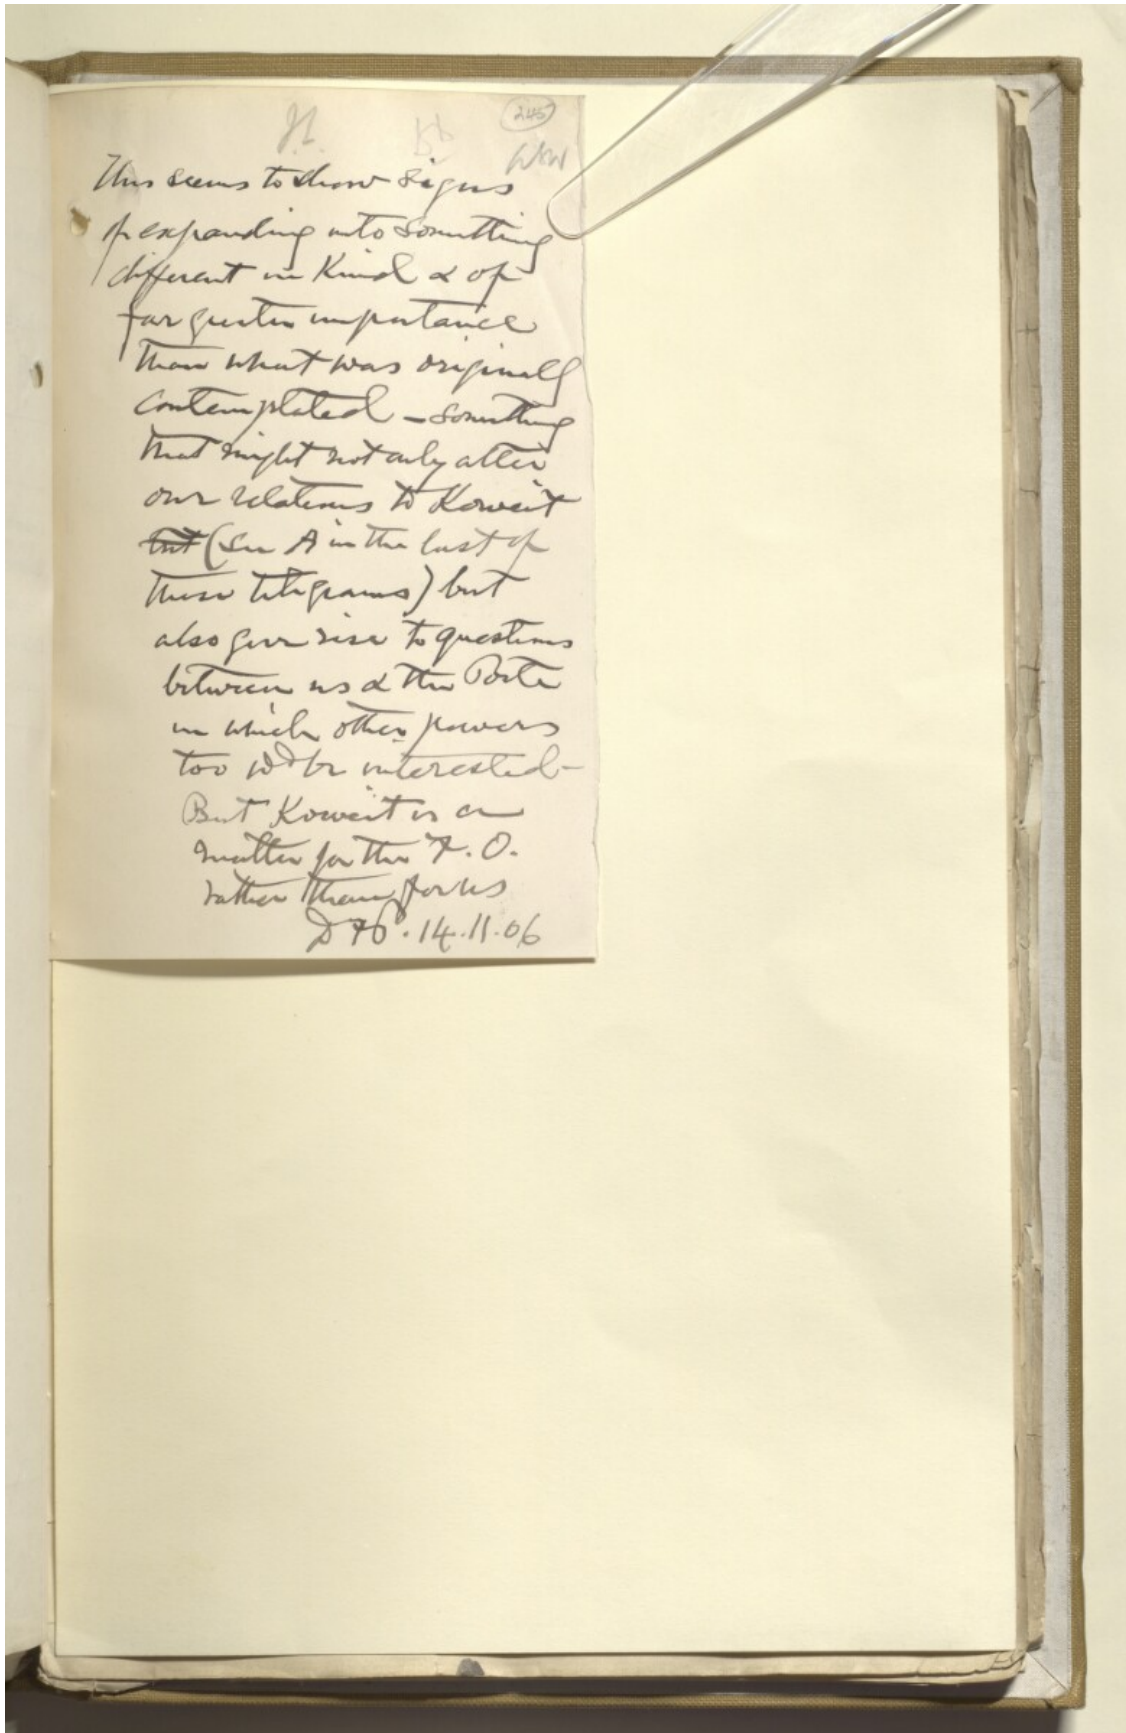 245
This seems to show signs
of expanding into something
different in kind & of
far greater importance
than what was originally
contemplated – something
that might not only alter
our relations to Koweit
but (see A in the last of
these telegrams) but
also give rise to questions
between us & the Porte
in which other powers
too wd be interested –
But Koweit is a
matter for the F.O.
rather than for us
14.11.06